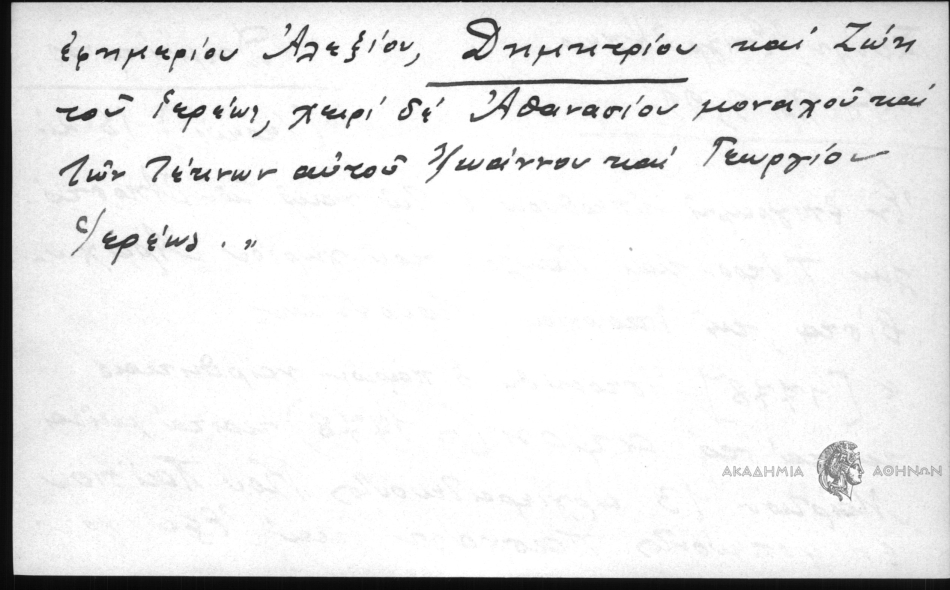 ἐφημερίου Ἀλεξίου, Δημητρίου καὶ Ζώη
τοῦ ἱερέως, χειρὶ δὲ Ἀθανασίου μοναχοῦ καὶ
τῶν τέκνων αὐτοῦ Ἰωάννου καὶ Γεωργίου
ἱερέως."
ΑΚΑΔΗΜΙΑ ΑΘΗΝΩΝ